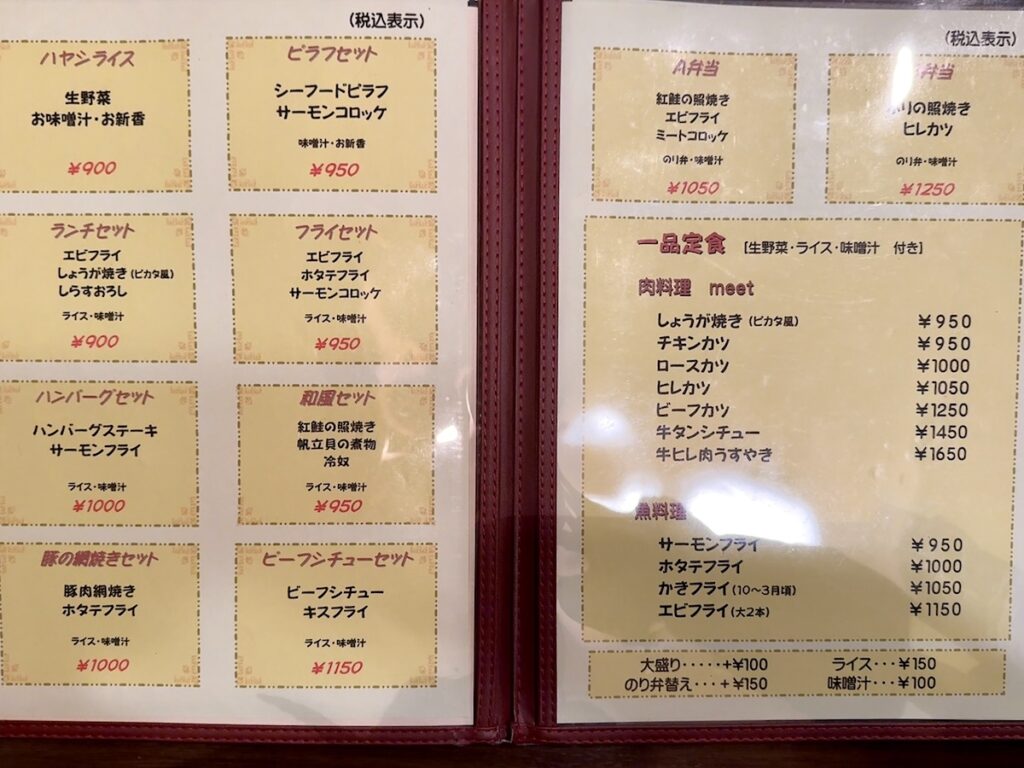 (税込表示)
ハヤシライス
生野菜
お味噌汁・お新香
¥900
ピラフセット
シーフードピラフ
サーモンコロッケ
味噌汁・お新香
¥950
ランチセット
エビフライ
しょうが焼き(ピカタ風)
しらすおろし
ライス・味噌汁
¥900
フライセット
エビフライ
ホタテフライ
サーモンコロッケ
ライス・味噌汁
¥950
ハンバーグセット
ハンバーグステーキ
サーモンフライ
ライス・味噌汁
¥1000
和風セット
紅鮭の照焼き
帆立貝の煮物
冷奴
ライス・味噌汁
¥950
豚の網焼きセット
豚肉網焼き
ホタテフライ
ライス・味噌汁
¥1000
ビーフシチューセット
ビーフシチュー
キスフライ
ライス・味噌汁
¥1150
(税込表示)
A弁当
紅鮭の照焼き
エビフライ
ミートコロッケ
のり弁・味噌汁
¥1050
弁当
の照焼き
ヒレカツ
のり弁・味噌汁
¥1250
一品定食 [生野菜・ライス・味噌汁 付き]
肉料理 meet
しょうが焼き(ピカタ風) ¥950
チキンカツ ¥950
ロースカツ ¥1000
ヒレカツ ¥1050
ビーフカツ ¥1250
牛タンシチュー ¥1450
牛ヒレ肉うすやき ¥1650
魚料理
サーモンフライ ¥950
ホタテフライ ¥1000
かきフライ(10〜3月頃) ¥1050
エビフライ(大2本) ¥1150
大盛り・・・・・+¥100 ライス・・・¥150
のり弁替え・・・+¥150 味噌汁・・・¥100